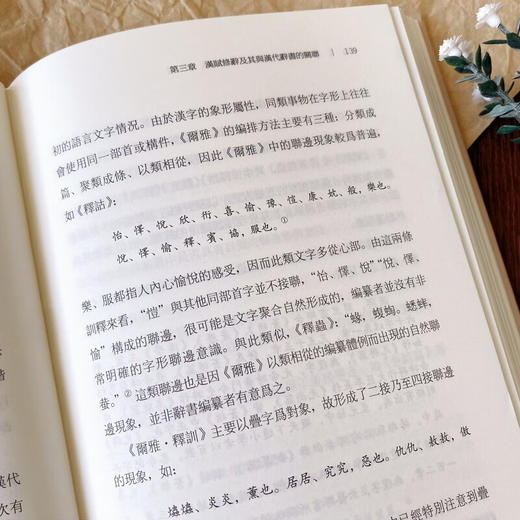 第三章 漢賦修辭及其與漢代辭書的關聯 | 139
初的語言文字情況。由於漢字的象形屬性，同類事物在字形上往往
會使用同一部首或構件，《爾雅》的編排方法主要有三種：分類成
篇、聚類成條、以類相從，因此《爾雅》中的聯邊現象較爲普遍，
如《釋詁》：
怡、懌、悅、欣、衎、喜、愉、豫、愷、康、妉、般，樂也。
悅、懌、愉、釋、賓、協，服也。①
樂、服都指人内心愉悅的感受，因而此類文字多從心部。由這兩條
訓釋來看，“愷”與其他同部首字並不接聯，“怡、懌、悅”“悅、懌、
愉”構成的聯邊，很可能是文字聚合自然形成的，編纂者並没有非
常明確的字形聯邊意識。與此類似，《釋蟲》：“蝝，蝮蜪。蟋蟀，
蛬。”②這類聯邊也是因《爾雅》以類相從的編纂體例而出現的自然聯
邊現象，並非辭書編纂者有意爲之。
《爾雅·釋訓》主要以疊字爲對象，故形成了二接乃至四接聯邊
的現象，如：
爞爞、炎炎，薰也。居居、究究，惡也。仇仇、敖敖，傲
已經特别注意到疊
皆
漢代
次有